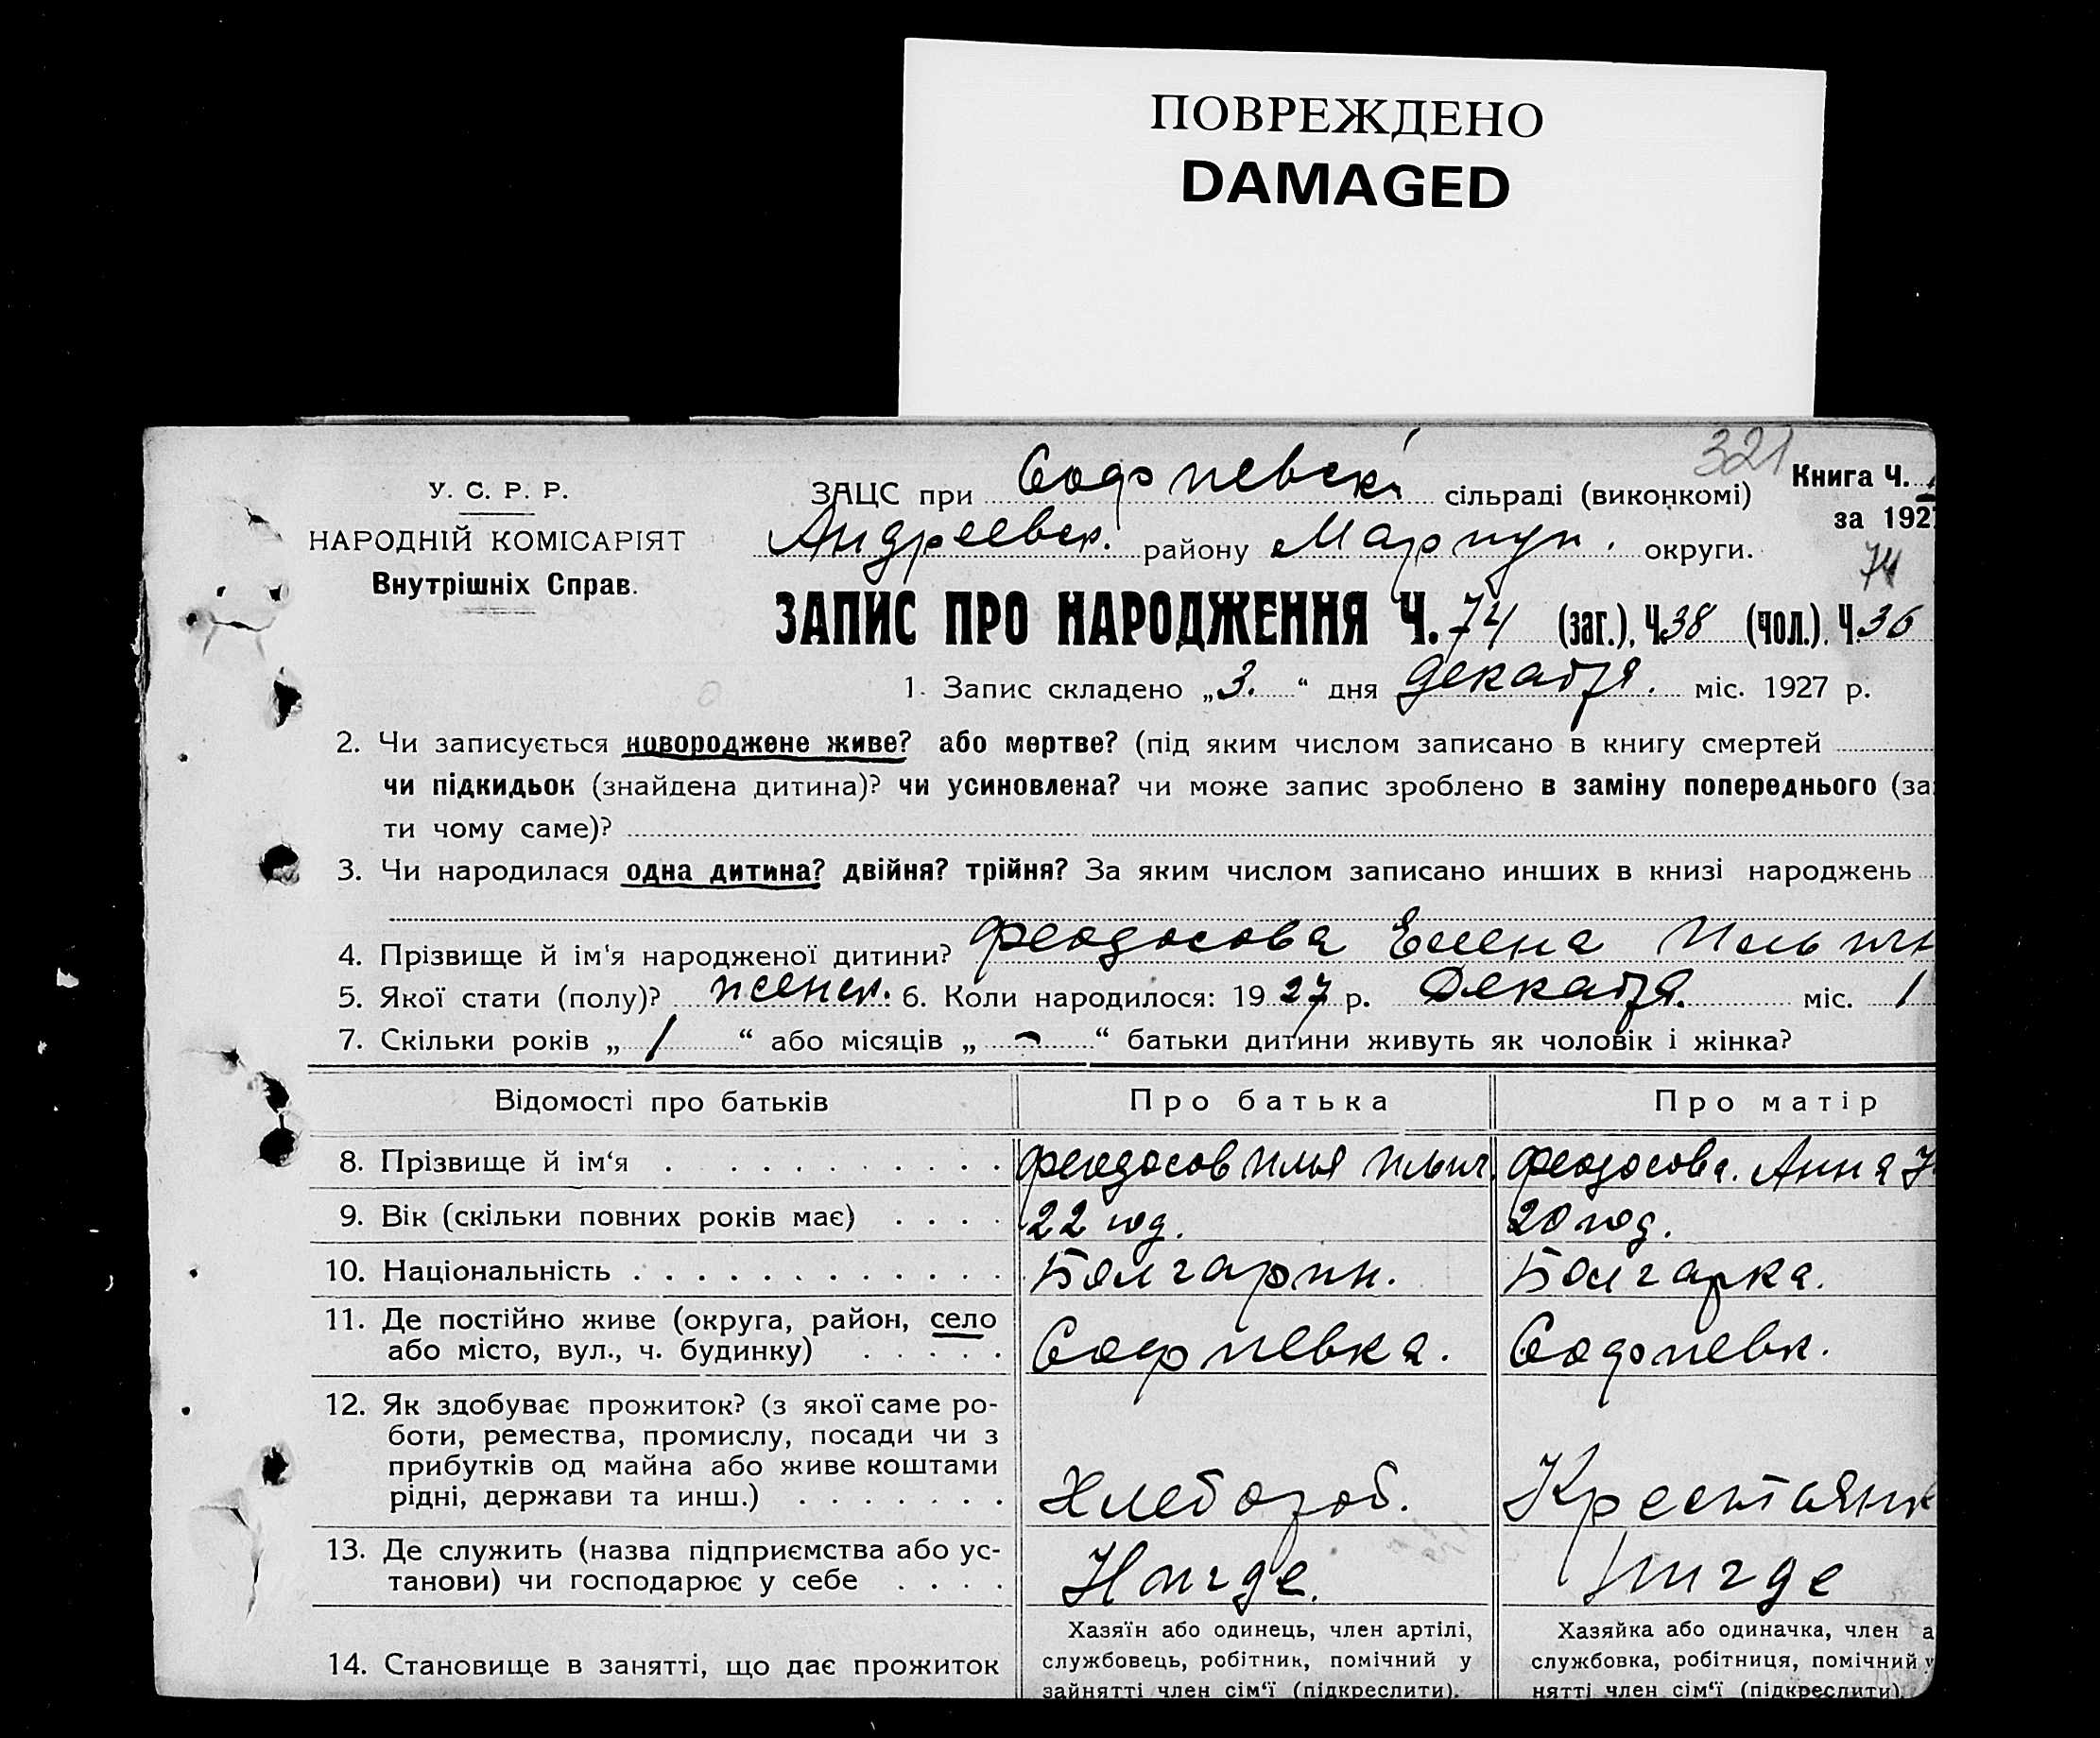 ПОВРЕЖДЕНО
DAMAGED
321
У. С. Р. Р.
НАРОДНІЙ КОМІСАРІЯТ
Внутрішніх Справ.
ЗАЦС при Софиевск. сільраді (виконкомі)
Книга Ч.
за 192
Андреевск. району Мариуп. округи.
74
ЗАПИС ПРО НАРОДЖЕННЯ Ч. 74 (заг.), Ч. 38 (чол.). Ч. 36
1. Запис складено „3.“ дня декабря. міс. 1927 р.
2. Чи записується новороджене живе? або мертве? (під яким числом записано в книгу смертей
чи підкидьок (знайдена дитина)? чи усиновлена? чи може запис зроблено в заміну попереднього (за
ти чому саме)?
3. Чи народилася одна дитина? двійня? трійня? За яким числом записано инших в книзі народжень
4. Прізвище й ім'я народженої дитини? Феодосова Елена Ильин
5. Якої стати (полу)? женск. 6. Коли народилося: 1927 р. Декабря. міс. 1
7. Скільки років „1“ або місяців „-“ батьки дитини живуть як чоловік і жінка?
Відомості про батьків Про батька Про матір
8. Прізвище й ім'я Феодосов Илья Ильич. Феодосова. Анна
9. Вік (скільки повних років має) 22 год. 20 год.
10. Національність Болгарин. Болгарка.
11. Де постійно живе (округа, район, село
або місто, вул., ч. будинку) Софиевка. Софиевк.
12. Як здобуває прожиток? (з якої саме ро-
боти, ремества, промислу, посади чи з
прибутків од майна або живе коштами
рідні, держави та инш.) Хлебороб. Крестьянк
13. Де служить (назва підприємства або ус-
танови) чи господарює у себе Нигде. Нигде
14. Становище в занятті, що дає прожиток
Хазяїн або одинець, член артілі,
службовець, робітник, помічний у
зайнятті член сім'ї (підкреслити).
Хазяйка або одиначка, член а
службовка, робітниця, помічний у
нятті член сім'ї (підкреслити)